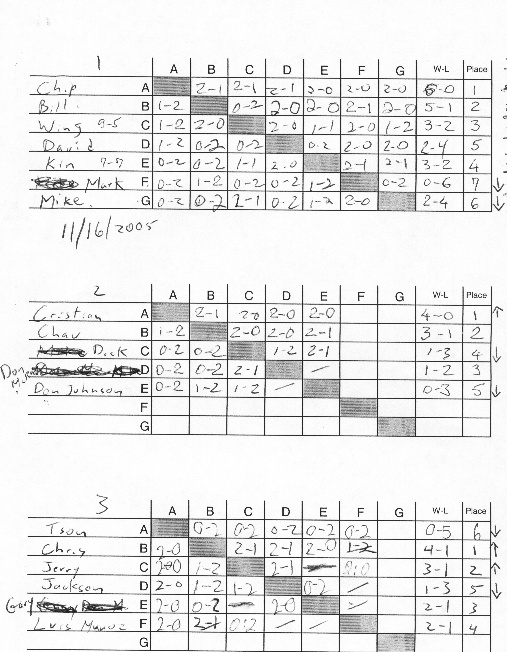 1 A B C D E F G W-L Place
Chip A 2-1 2-1 2-1 2-0 2-0 2-0 6-0 1
Bill B 1-2 0-2 2-0 2-0 2-1 2-0 5-1 2
Wing 9-5 C 1-2 2-0 2-0 1-1 2-0 1-2 3-2 3
David D 1-2 0-2 0-2 0-2 2-0 2-0 2-4 5
Kin 7-7 E 0-2 0-2 1-1 2-0 2-1 2-1 3-2 4
Mark F 0-2 1-2 0-2 0-2 1-2 0-2 0-6 7 ↓
Mike G 0-2 0-2 2-1 0-2 1-2 2-0 2-4 6 ↓
11/16/2005
2 A B C D E F G W-L Place
Cristian A 2-1 2-0 2-0 4-0 1 ↑
Chau B 1-2 2-0 2-0 2-1 3-1 2
Dick C 0-2 0-2 1-2 2-1 1-3 4 ↓
Don D 0-2 0-2 2-1 — 1-2 3
Don Johnson E 0-2 1-2 1-2 — 0-3 5 ↓
F
G
3 A B C D E F G W-L Place
Tson A 0-2 0-2 0-2 0-2 0-2 0-5 6 ↓
Chris B 2-0 2-1 2-1 2-0 1-2 4-1 1 ↑
Jerry C 1-2 2-1 3-1 2 ↑
Jackson D 2-0 1-2 1-2 0-2 — 1-3 5 ↓
Gary E 2-0 0-2 — 2-0 — 2-1 3
Luis Munoz F 2-0 2-1 0-2 — — 2-1 4
G